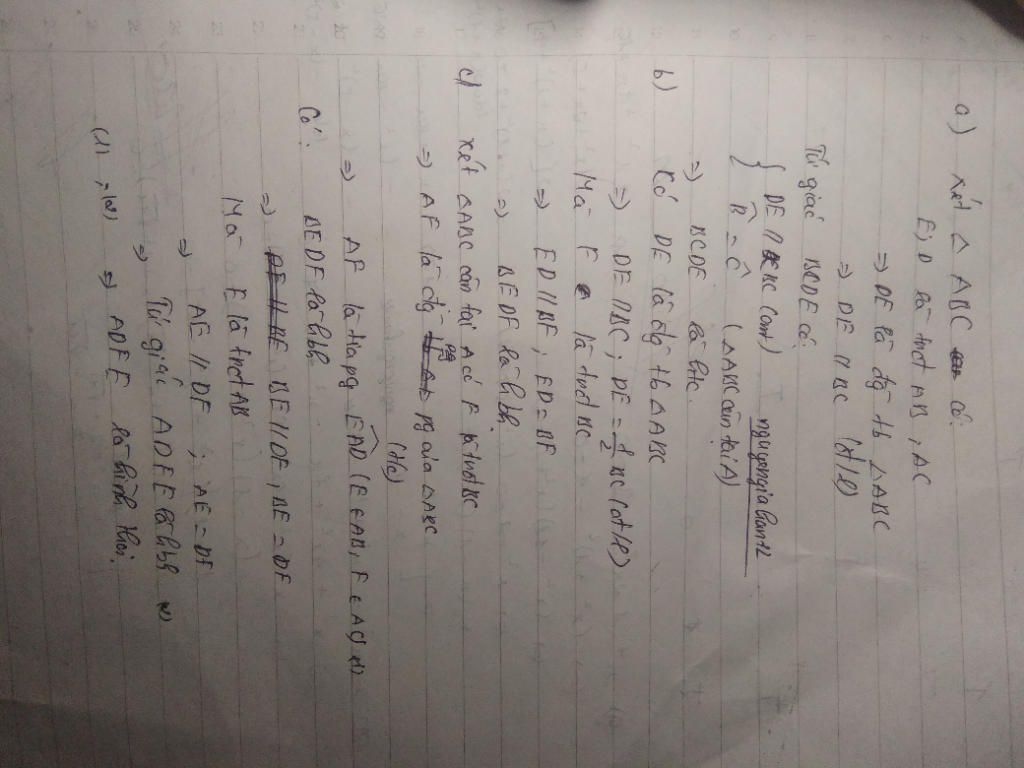 a) Xét △ ABC có:
E; D là trđt AB, AC
=> DE là đg tb △ABC
=> DE // BC (đl)
Tứ giác BCDE có:
{ DE // BC (cmt)
B̂ = Ĉ (△ABC cân tại A)
nguyengiahanhtl
=> BCDE là htc
b) Có DE là đg tb △ABC
=> DE // BC; DE = 1/2 BC (đl)
Mà F là trđt BC
=> ED // BF; ED = BF
=> BEDF là hbh
c) Xét △ABC cân tại A có F là trđt BC
=> AF là đg pg của △ABC
=> AF là tia pg EAD (E ∈ AB, F ∈ AC) (1)
Có: BEDF là hbh
=> BE // DF, BE = DF
Mà E là trđt AB
=> AE // DF; AE = DF
=> Tứ giác ADFE là hbh (2)
(1), (2) => ADFE là hình thoi.